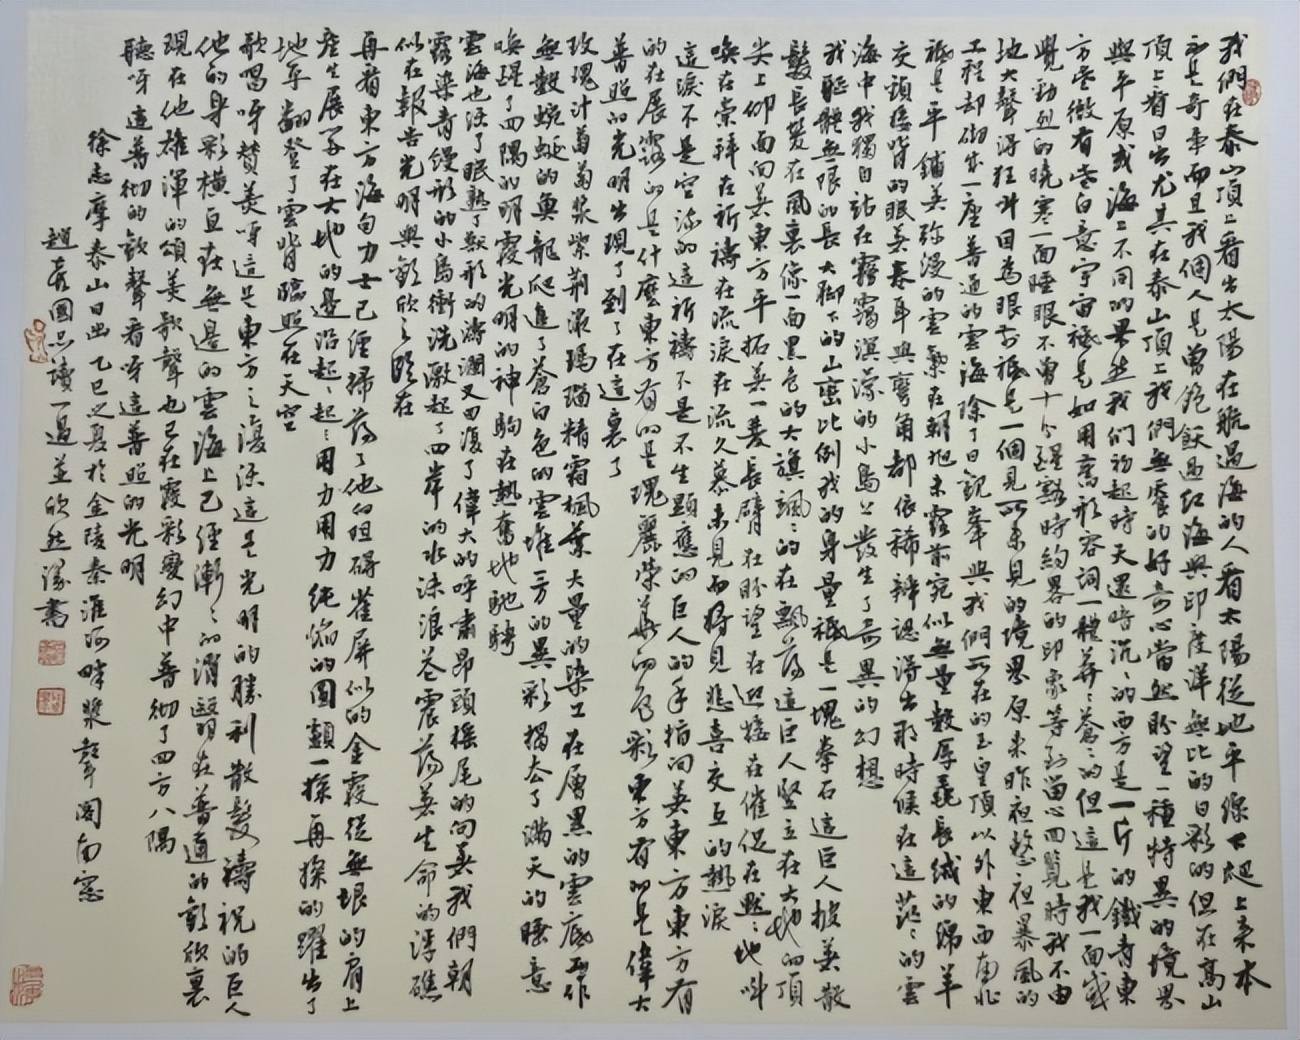 我們在泰山頂上看出太陽在航過海的人看太陽從地平線下爬上來本
不是奇事而且我個人是曾飽飫過紅海與印度洋無比的日彩的但在高山
頂上看日出尤其在泰山頂上我們無饜的好奇心當然盼望一種特異的境界
與平原或海上不同的果然我们初起時天還暗沉沉的西方是一片的鐵青東
方些微有些白意宇宙祗是如用舊形容詞一體莽莽蒼蒼的但這是我一面感
覺勁烈的曉寒一面睡眼不曾十分醒豁時約畧的印象等到留心回覽時我不由
地大聲得狂叫因為眼前祗是一個見所未見的境界原來昨夜整夜暴風的
工程却砌成一座普通的雲海除了日觀峯與我們所在的玉皇頂以外東西南北
祗是平鋪着弥漫的雲氣在朝旭未露前宛似無量數厚毳長絨的绵羊
交頸接背的眠着卷耳與彎角都依稀辨認得出那時候在這茫茫的雲
海中我獨自站在霧靄溟濛的小島上發生了奇異的幻想
我軀體無限的長大脚下的山巒比例我的身量祗是一塊拳石這巨人披着散
髮長髮在風裏像一面黑色的大旗飒飒的在飘蕩這巨人竪立在大地的頂
尖上仰面向着東方平拓着一雙長臂在盼望在迎接在催促在默默地叫
唤在崇拜在祈禱在流淚在流久慕未見而将見悲喜交互的熱淚
這淚不是空流的這祈禱不是不生顯應的巨人的手指向着東方東方有
的在展露的是什麽東方有的是瑰麗荣華的色彩東方有的是偉大
普照的光明出現了到了在這裏了
玫瑰汁葡萄漿紫荆液瑪瑙精霜楓葉大量的染工在層累的雲底工作
無數蜿蜒的魚龍爬進了蒼白色的雲堆一方的異彩揭去了滿天的睡意
唤醒了四隅的明霞光明的神駒在熱奮地馳騁
雲海也活了眠熟了獸形的濤瀾又回復了偉大的呼嘯昂頭摇尾的向着我們朝
露染青缦形的小島衝洗激起了四岸的水沫浪花震荡着生命的浮礁
似在報告光明與歡欣之臨在
再看東方海句力士已經掃蕩了他的阻碍雀屏似的金霞從無垠的肩上
産生展開在大地的邊沿起起起用力用力純焔的圆顱一探再探的躍出了
地平翻登了雲背臨照在天空
歌唱呀赞美呀這是東方之復活這是光明的勝利散髮禱祝的巨人
他的身彩横亘在無邊的雲海上已經漸漸的消翳在普遍的歡欣裏
現在他雄渾的頌美歌聲也已在霞彩變幻中普彻了四方八隅
聽呀這普彻的歡聲看呀這普照的光明
徐志摩泰山日出 乙巳之夏於金陵秦淮河畔漿聲閣南窓
趙 國 讀一過並欣然漫書